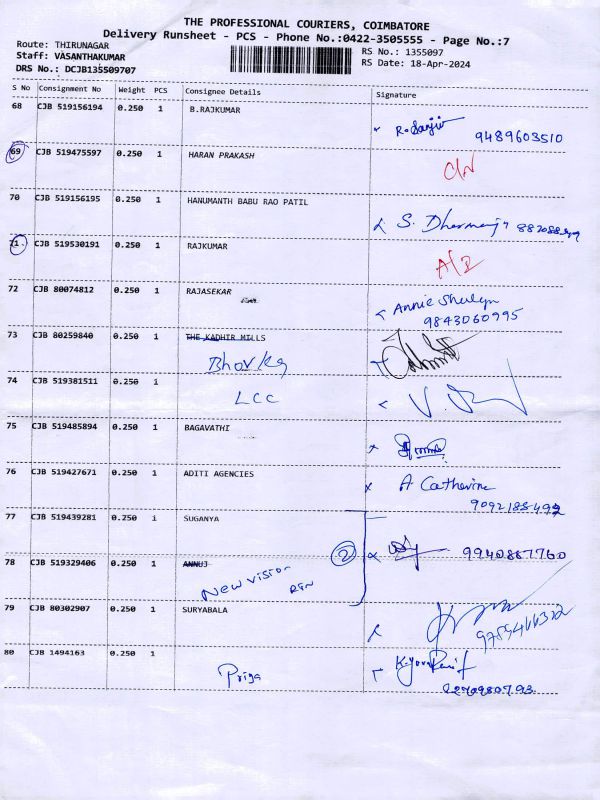 THE PROFESSIONAL COURIERS, COIMBATORE
Delivery Runsheet - PCS - Phone No.:0422-3505555 - Page No.:7
Route: THIRUNAGAR
Staff: VASANTHAKUMAR
DRS No.: DCJB135509707
RS No.: 1355097
RS Date: 18-Apr-2024
S No Consignment No Weight PCS Consignee Details Signature
68 CJB 519156194 0.250 1 B.RAJKUMAR
9489603510
69 CJB 519475597 0.250 1 HARAN PRAKASH
70 CJB 519156195 0.250 1 HANUMANTH BABU RAO PATIL
S.
71 CJB 519530191 0.250 1 RAJKUMAR
72 CJB 80074812 0.250 1 RAJASEKAR
Annie
9843060995
73 CJB 80259840 0.250 1 THE KADHIR MILLS
74 CJB 519381511 0.250 1 LCC
75 CJB 519485894 0.250 1 BAGAVATHI
76 CJB 519427671 0.250 1 ADITI AGENCIES
A Catherine
77 CJB 519439281 0.250 1 SUGANYA
2 9940887760
78 CJB 519329406 0.250 1 ANNUJ
New vision
79 CJB 80302907 0.250 1 SURYABALA
80 CJB 1494163 0.250 1
Priya